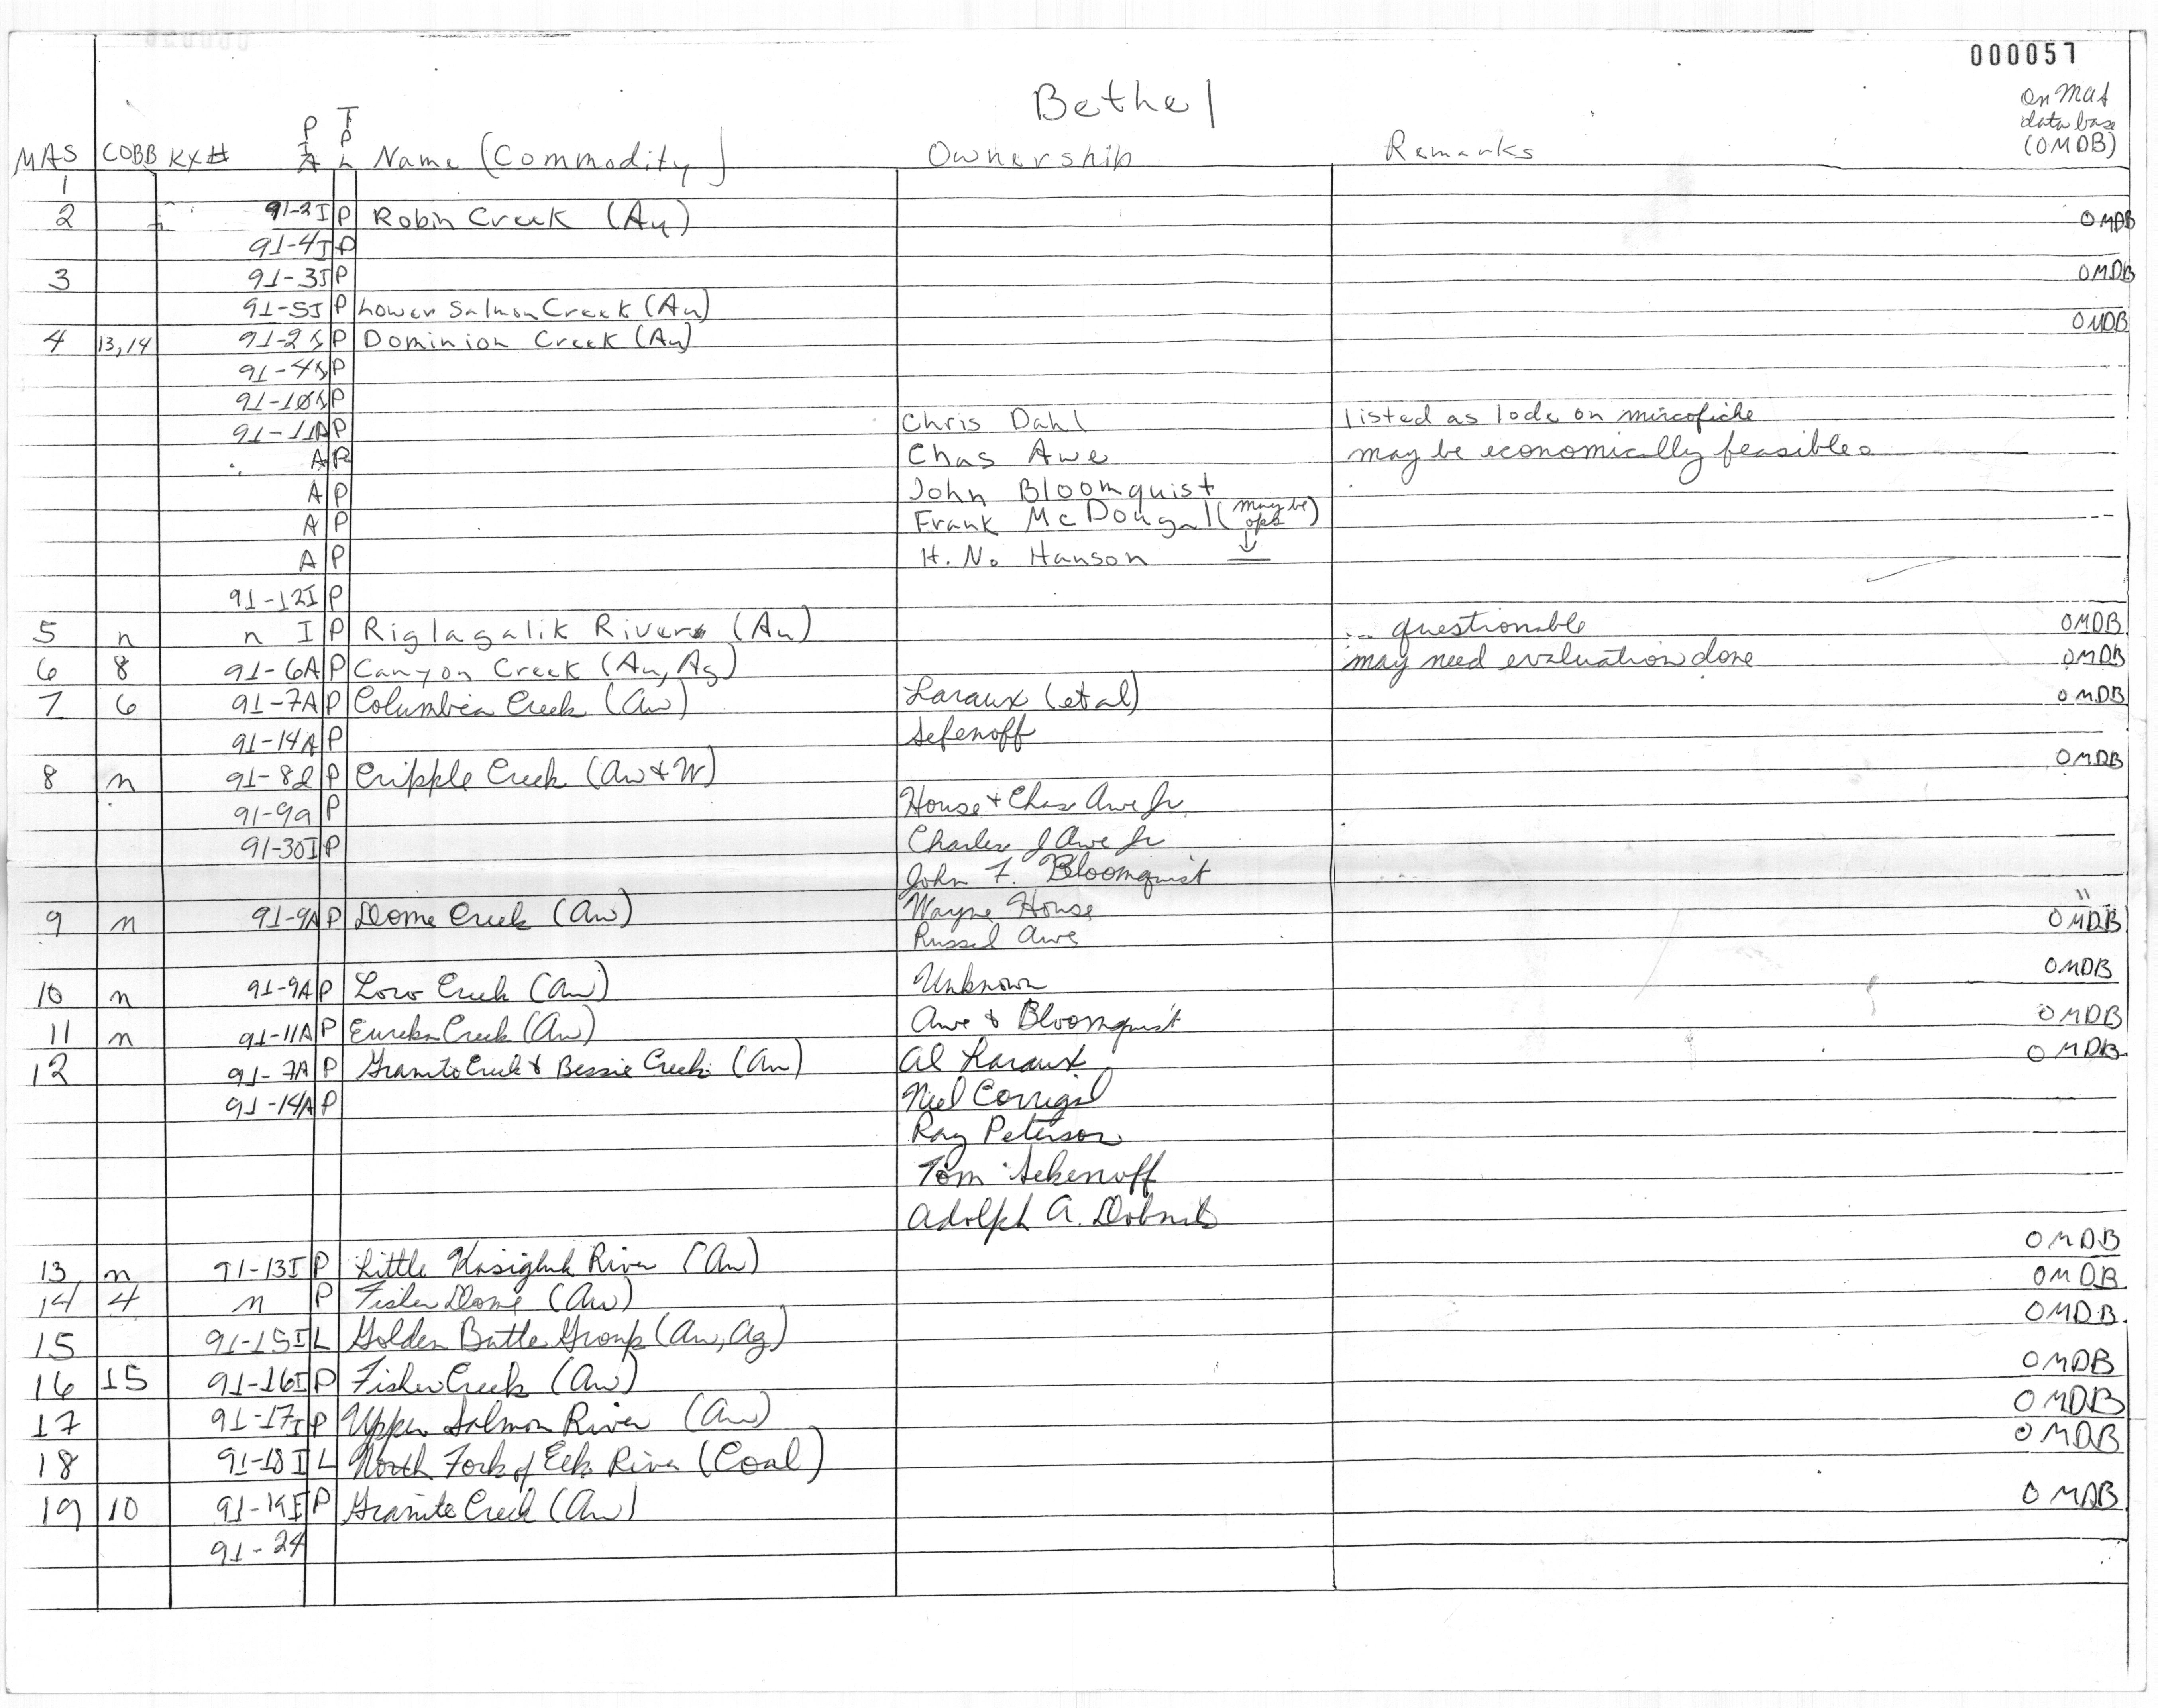 000057
Bethel
On MAS
data base
(OMDB)
MAS COBB KX# PIA TPL Name (Commodity) Ownership Remarks
1
2 91-2 I P Robin Creek (Au) OMDB
91-4 I P
3 91-3 I P OMDB
91-5 I P Lower Salmon Creek (Au)
4 13,14 91-2 P Dominion Creek (Au) OMDB
91-4 P
91-10 P
91-11 A P Chris Dahl listed as lode on mircofiche
A P Chas Awe may be economically feasible.
A P John Bloomquist
A P Frank McDougal (may be ops)
A P H. N. Hanson
91-12 I P
5 n n I P Riglagalik River (Au) questionable OMDB
6 8 91-6 A P Canyon Creek (Au, Ag) may need evaluation done OMDB
7 6 91-7 A P Columbia Creek (Au) Laraux (et al) OMDB
91-14 A P Sefenoff
8 n 91-8 P Cripple Creek (Au + W) OMDB
91-9a P House + Chas Awe Jr.
91-30 I P Charles J Awe Jr
John F. Bloomquist
9 n 91-9 A P Dome Creek (Au) Wayne House " OMDB
Russel Awe
10 n 91-9 A P Low Creek (Au) Unknown OMDB
11 n 91-11 A P Eureka Creek (Au) Awe & Bloomquist OMDB
12 91-7 A P Granite Creek & Bessie Creek (Au) Al Laraux OMDB
91-14 A P Niel Corrigal
Ray Peterson
Tom Sekenoff
Adolph A.
13 n 91-13 I P Little Kasigluk River (Au) OMDB
14 4 n P Fisher Dome (Au) OMDB
15 91-15 I L Golden Butte Group (Au, Ag) OMDB
16 15 91-16 I P Fisher Creek (Au) OMDB
17 91-17 I P Upper Salmon River (Au) OMDB
18 91-18 I L North Fork of Eek River (Coal) OMDB
19 10 91-19 I P Granite Creek (Au) OMDB
91-24